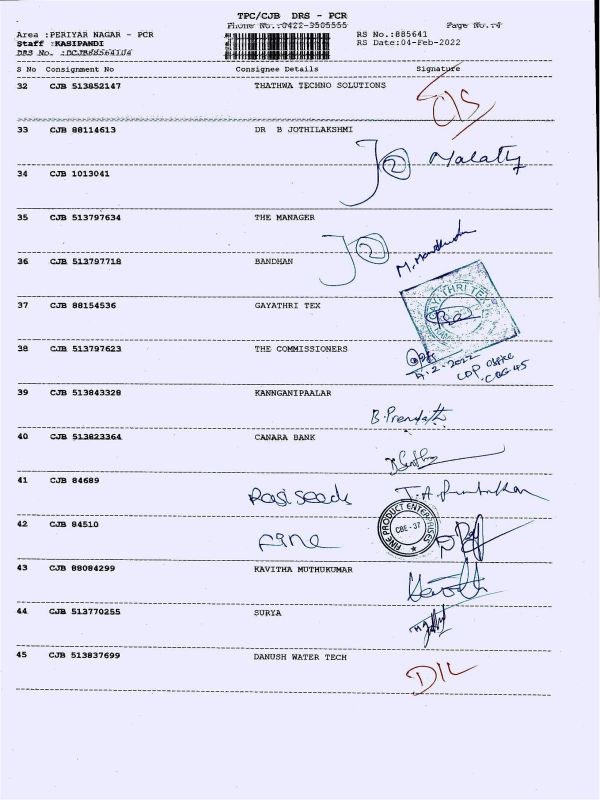 TPC/CJB DRS - PCR
Phone No.:0422-3505555 Page No.:4
Area :PERIYAR NAGAR - PCR RS No.:885641
Staff :KASIPANDI RS Date:04-Feb-2022
DRS No. :DCJB88564104
S No Consignment No Consignee Details Signature
32 CJB 513852147 THATHWA TECHNO SOLUTIONS
33 CJB 88114613 DR B JOTHILAKSHMI
Malathy
34 CJB 1013041
35 CJB 513797634 THE MANAGER
36 CJB 513797718 BANDHAN
37 CJB 88154536 GAYATHRI TEX
38 CJB 513797623 THE COMMISSIONERS
4.2.2022
CDP Office
CBE 45
39 CJB 513843328 KANNGANIPAALAR
40 CJB 513823364 CANARA BANK
41 CJB 84689 Rasi seeds
42 CJB 84510 Fine
FINE PRODUCT ENTERPRISES
CBE - 37
43 CJB 88084299 KAVITHA MUTHUKUMAR
44 CJB 513770255 SURYA
45 CJB 513837699 DANUSH WATER TECH
D/L